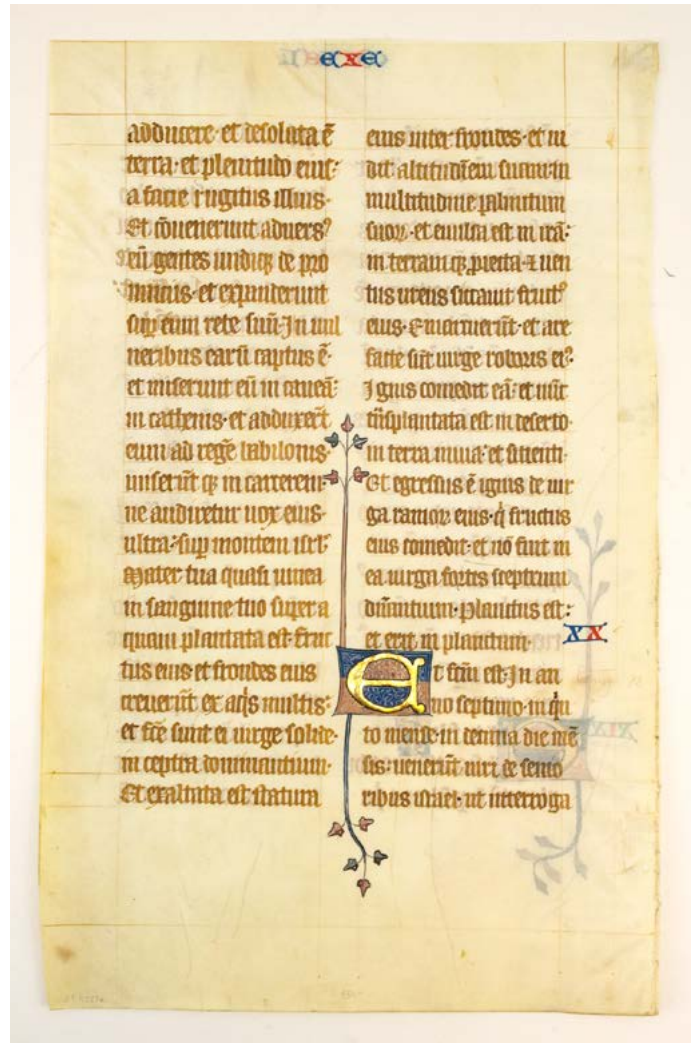 EXE
adducere· et desoluta ē
terra· et plenitudo eius:
a facie rugitus illius·
Et cōuenerunt aduersꝰ
eū gentes undiqꝫ de pro
uinciis· et expanderunt
suꝑ eum rete suū· In uul
neribus earū captus ē·
et miserunt eū in caueā:
in cathenis· et adduxer̄t
eum ad regē babilonis·
miserūt qꝫ in carcerem·
ne audiretur uox eius·
ultra· suꝑ montem isrl̄·
Mater tua quasi uinea
in sanguine tuo super a
quam plantata est· fruc
tus eius et frondes eius
creuerūt ex aq̄s multis:
et fc̄e sunt ei uirge solide·
in ceptra dominantium·
Et exaltata est statura
eius inter frondes· et ui
dit altitudinem suam in
multitudine palmitum
suoꝝ· et euulsa est in irā:
in terram qꝫ ꝓiecta· ⁊ uen
tus urens siccauit fructꝰ
eius· Emarcuerūt· et are
facte sūt uirge roboris eiꝰ·
Ignis comedit eā: et nūc
trāsplantata est in deserto·
in terra inuia· et sitienti·
Et egressus ē ignis de uir
ga ramoꝝ eius· q̄ fructus
eius comedit· et nō fuit in
ea uirga fortis sceptrum
dn̄antium· Planctus est:
et erit in planctum·
XX
Et fc̄m est· In an
no septimo· in qn̄
to mense· in decima die mē
sis: uenerūt uiri de senio
ribus israel· ut interroga